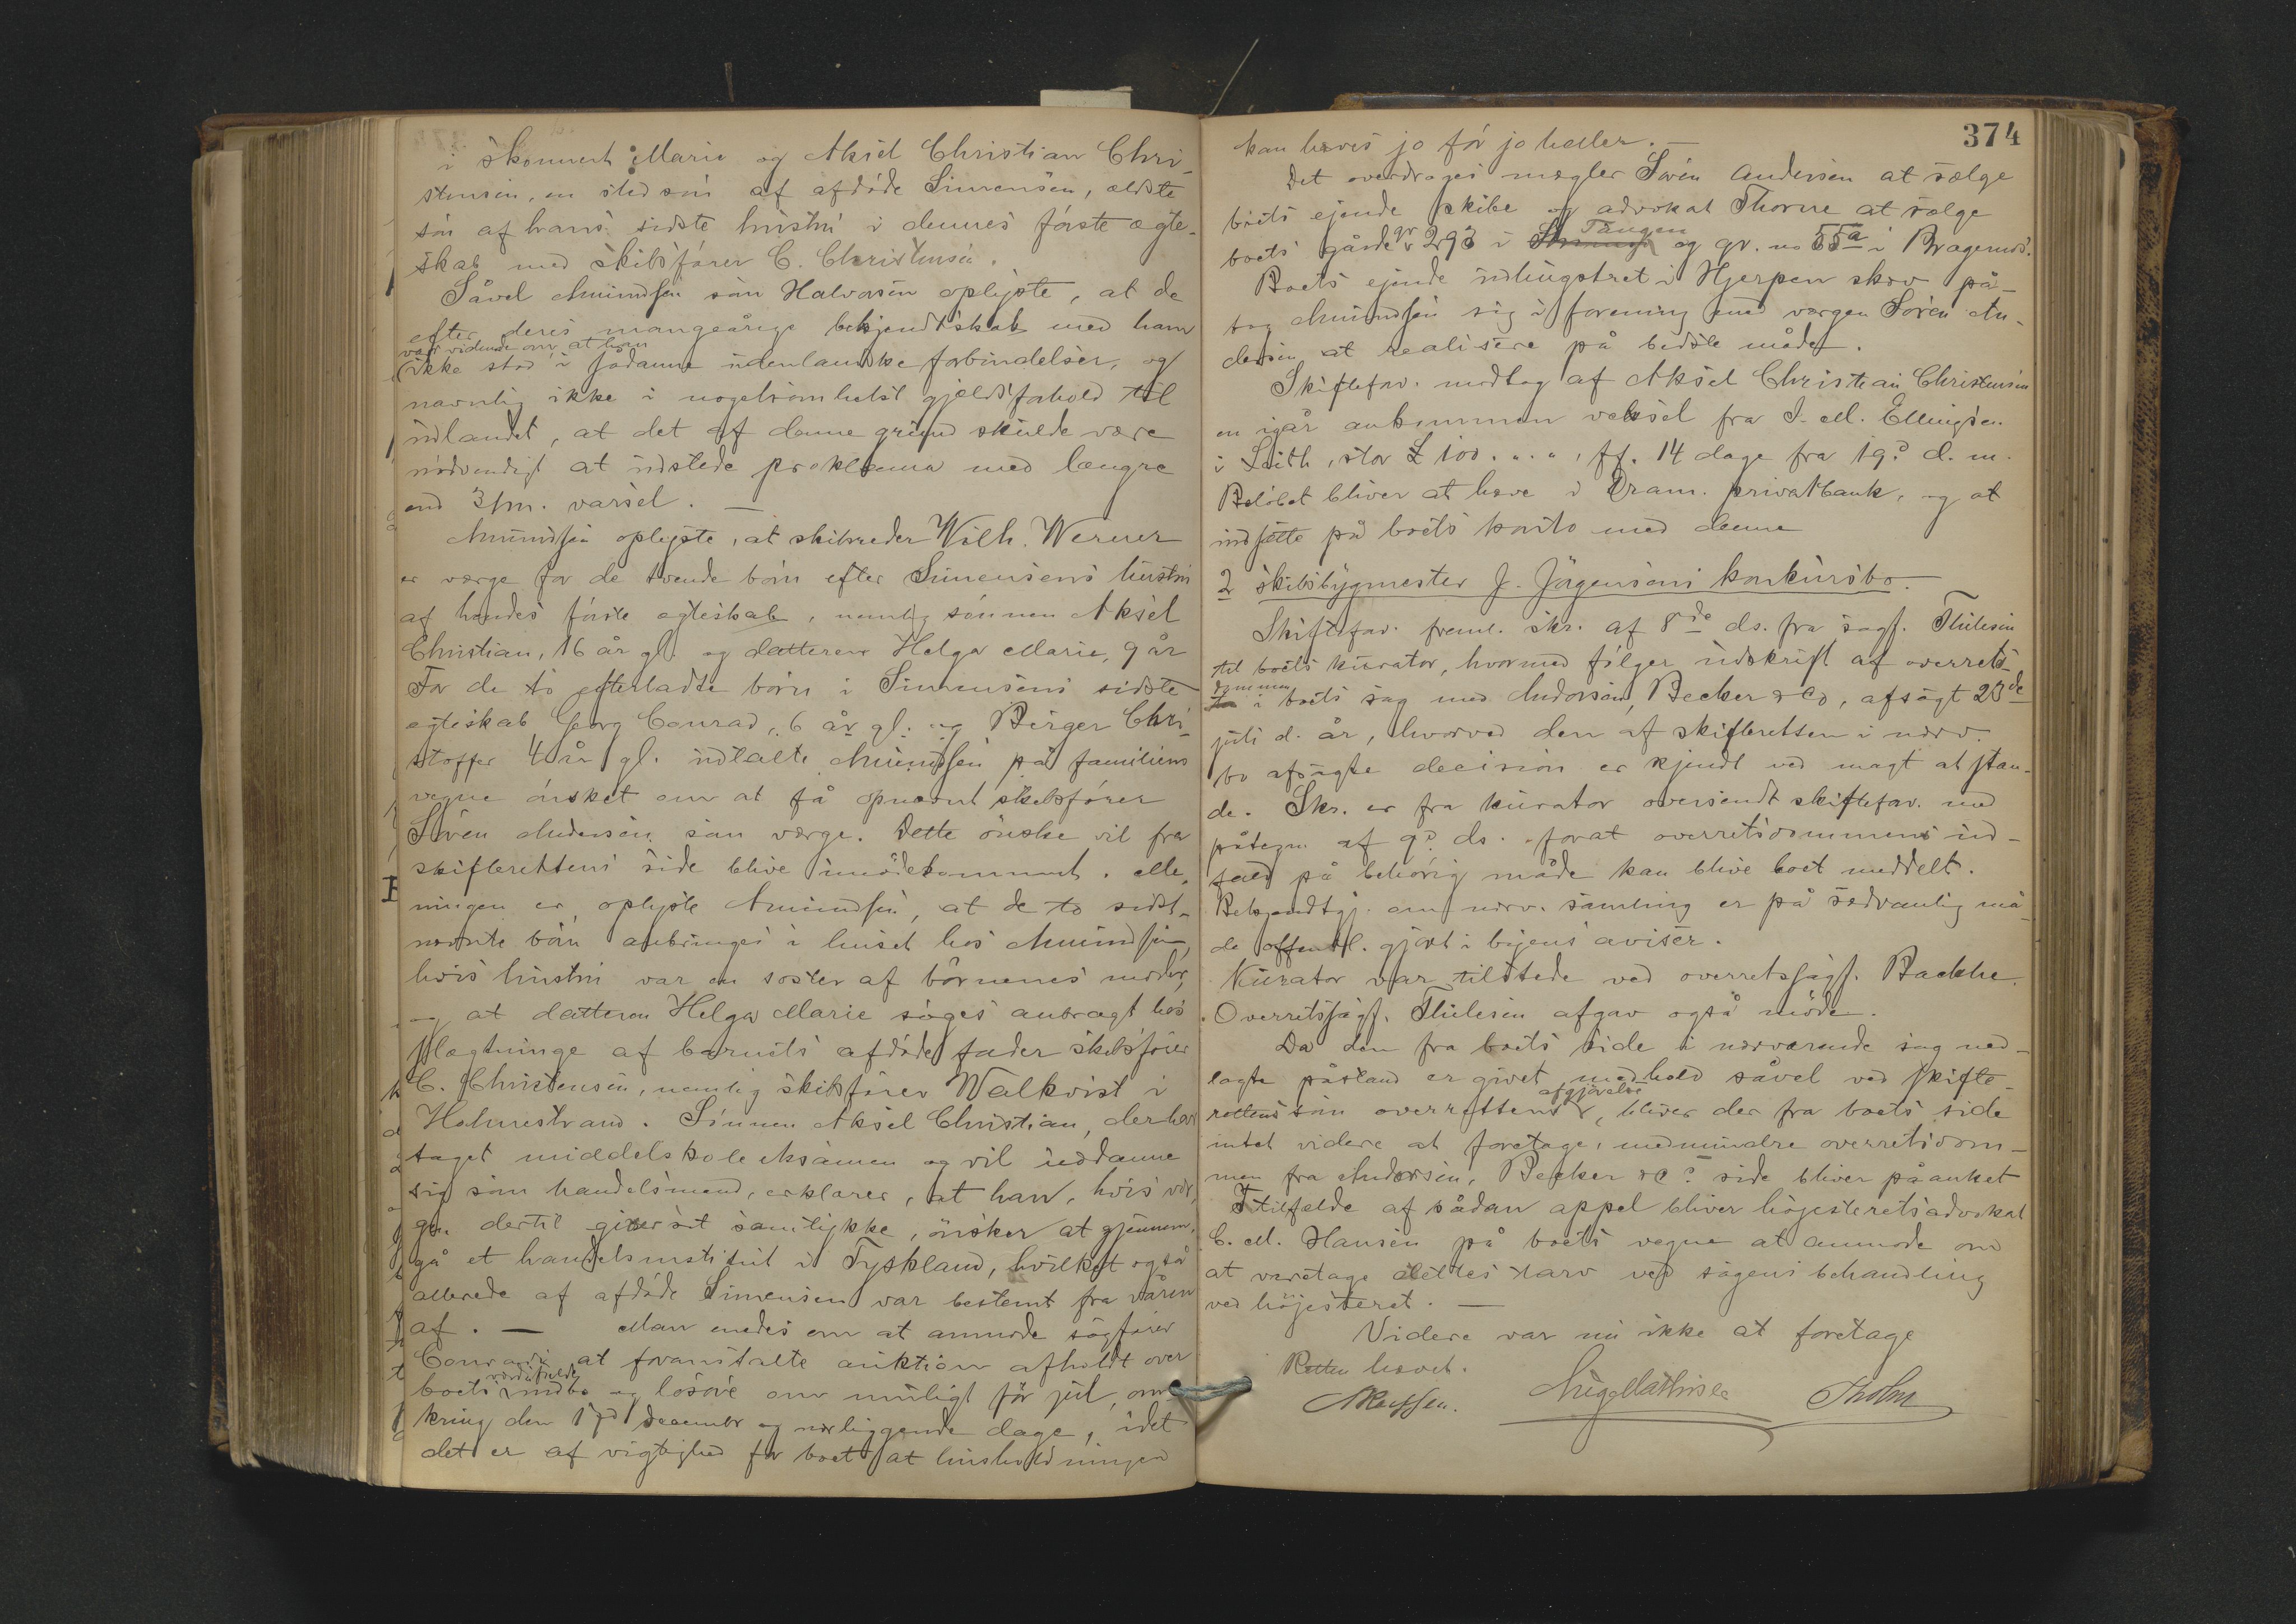 i Skonnert Marie og Aksel Christian Chri-
stensen, en stedsön af afdöde Simensen, ældste
sön af hans sidste hustru i dennes förste ægte-
skab med skibsförer C. Christensen.
Såvel Amundsen som Halvorsen oplyste, at de
efter deres mangeårige bekjendtskab med ham
var vidende om, at han
ikke stod i sådanne udenlandske forbindelser, og
navnlig ikke i nogetsomhelst gjældsforhold til
udlandet, at det af denne grund skulde være
nödvendigt at udstede proklama med længre
end 3 m. varsel. —
Amundsen oplyste, at skibsreder Wilh. Werner
er værge for de tvende börn efter Simensens hustru
af hendes förste ægteskab, nemlig sönnen Aksel
Christian, 16 år gl. og datteren Helga Marie, 9 år
For de to efterladte börn i Simensens sidste
ægteskab Georg Conrad, 6 år gl. og Birger Chri-
stoffer 4 år gl. udtalte Amundsen på familiens
vegne önsket om at få opnævnt skibsförer
Sören Andersen som værge. Dette önske vil fra
skifterettens side blive imödekommet. Me-
ningen er, oplyste Amundsen, at de to sidst-
nævnte börn anbringes i huset hos Amundsen,
hvis hustru var en søster af börnenes moder,
og at datteren Helga Marie söges anbragt hos
slægtninge af barnets afdöde fader skibsförer
C. Christensen, nemlig skibsförer Walkvist i
Holmestrand. Sönnen Aksel Christian, der har
taget middelskoleeksamen og vil uddanne
sig som handelsmand, erklærer, at han, hvis vær-
gen dertil giver sit samtykke, önsker at gjennem-
gå et handelsinstitut i Tyskland, hvilket også
allerede af afdöde Simensen var bestemt fra våren
af. — Man enedes om at anmode sagförer
Conradi at foranstalte auktion afholdt over
boets indbo og lösöre om muligt för jul, om-
kring den 17d december og nærliggende dage, idet
det er af vigtighed for boet at husholdningen
374
kan hæves jo för jo heller. —
Det overdroges mægler Sören Andersen at sælge
boets ejende skibe og advokat Thorne at sælge
Tangen
boets gårde gr 293 i og gr. no 55a i Bragernes.
Boets ejende udhugstret i Hjerpen skov på-
tog Amundsen sig i forening med værgen Sören An-
dersen at realisere på bedste måde.
Skiftefor. modtog af Aksel Christian Christensen
en igår ankommen veksel fra J. M. Ellingsen
i Leith, stor £ 100. „ . „ , ff. 14 dage fra 19d d. m.
Belöbet bliver at hæve i Dram. privatbank, og at
indsætte på boets konto med denne
2 skibsbygmester J. Jörgensens konkursbo. —
Skiftefor. freml. skr. af 8de ds. fra sagf. Thilesen
til boets kurator, hvormed fölger udskrift af overrets-
dommen
i boets sag med Andorsen, Becker & Co, afsagt 23de
juli d. år, hvorved den af skifteretten i nærv.
bo afsagte decision er kjendt ved magt at stan-
de. Skr. er fra kurator oversendt skiftefor. med
påtegn. af 9d ds. forat overretsdommens ind-
hold på behörig måde kan blive boet meddelt.
Bekjendtgj. om nærv. samling er på sædvanlig må-
de offentl. gjort i byens aviser.
Kurator var tilstede ved overretssagf. Backke.
Overretssagf. Thilesen afgav også möde.
Da den fra boets side i nærværende sag ned-
lagte påstand er givet medhold såvel ved skifte-
afgjörelse
rettens som overrettens, bliver der fra boets side
intet videre at foretage, medmindre overretsdom-
men fra Andorsen, Becker & Co side bliver påanket
I tilfælde af sådan appel bliver höjesteretsadvokat
C. M. Hansen på boets vegne at anmode om
at varetage dettes tarv ved sagens behandling
ved höjesteret. —
Videre var nu ikke at foretage
Retten hævet.
Aug Mathisen
Tholm